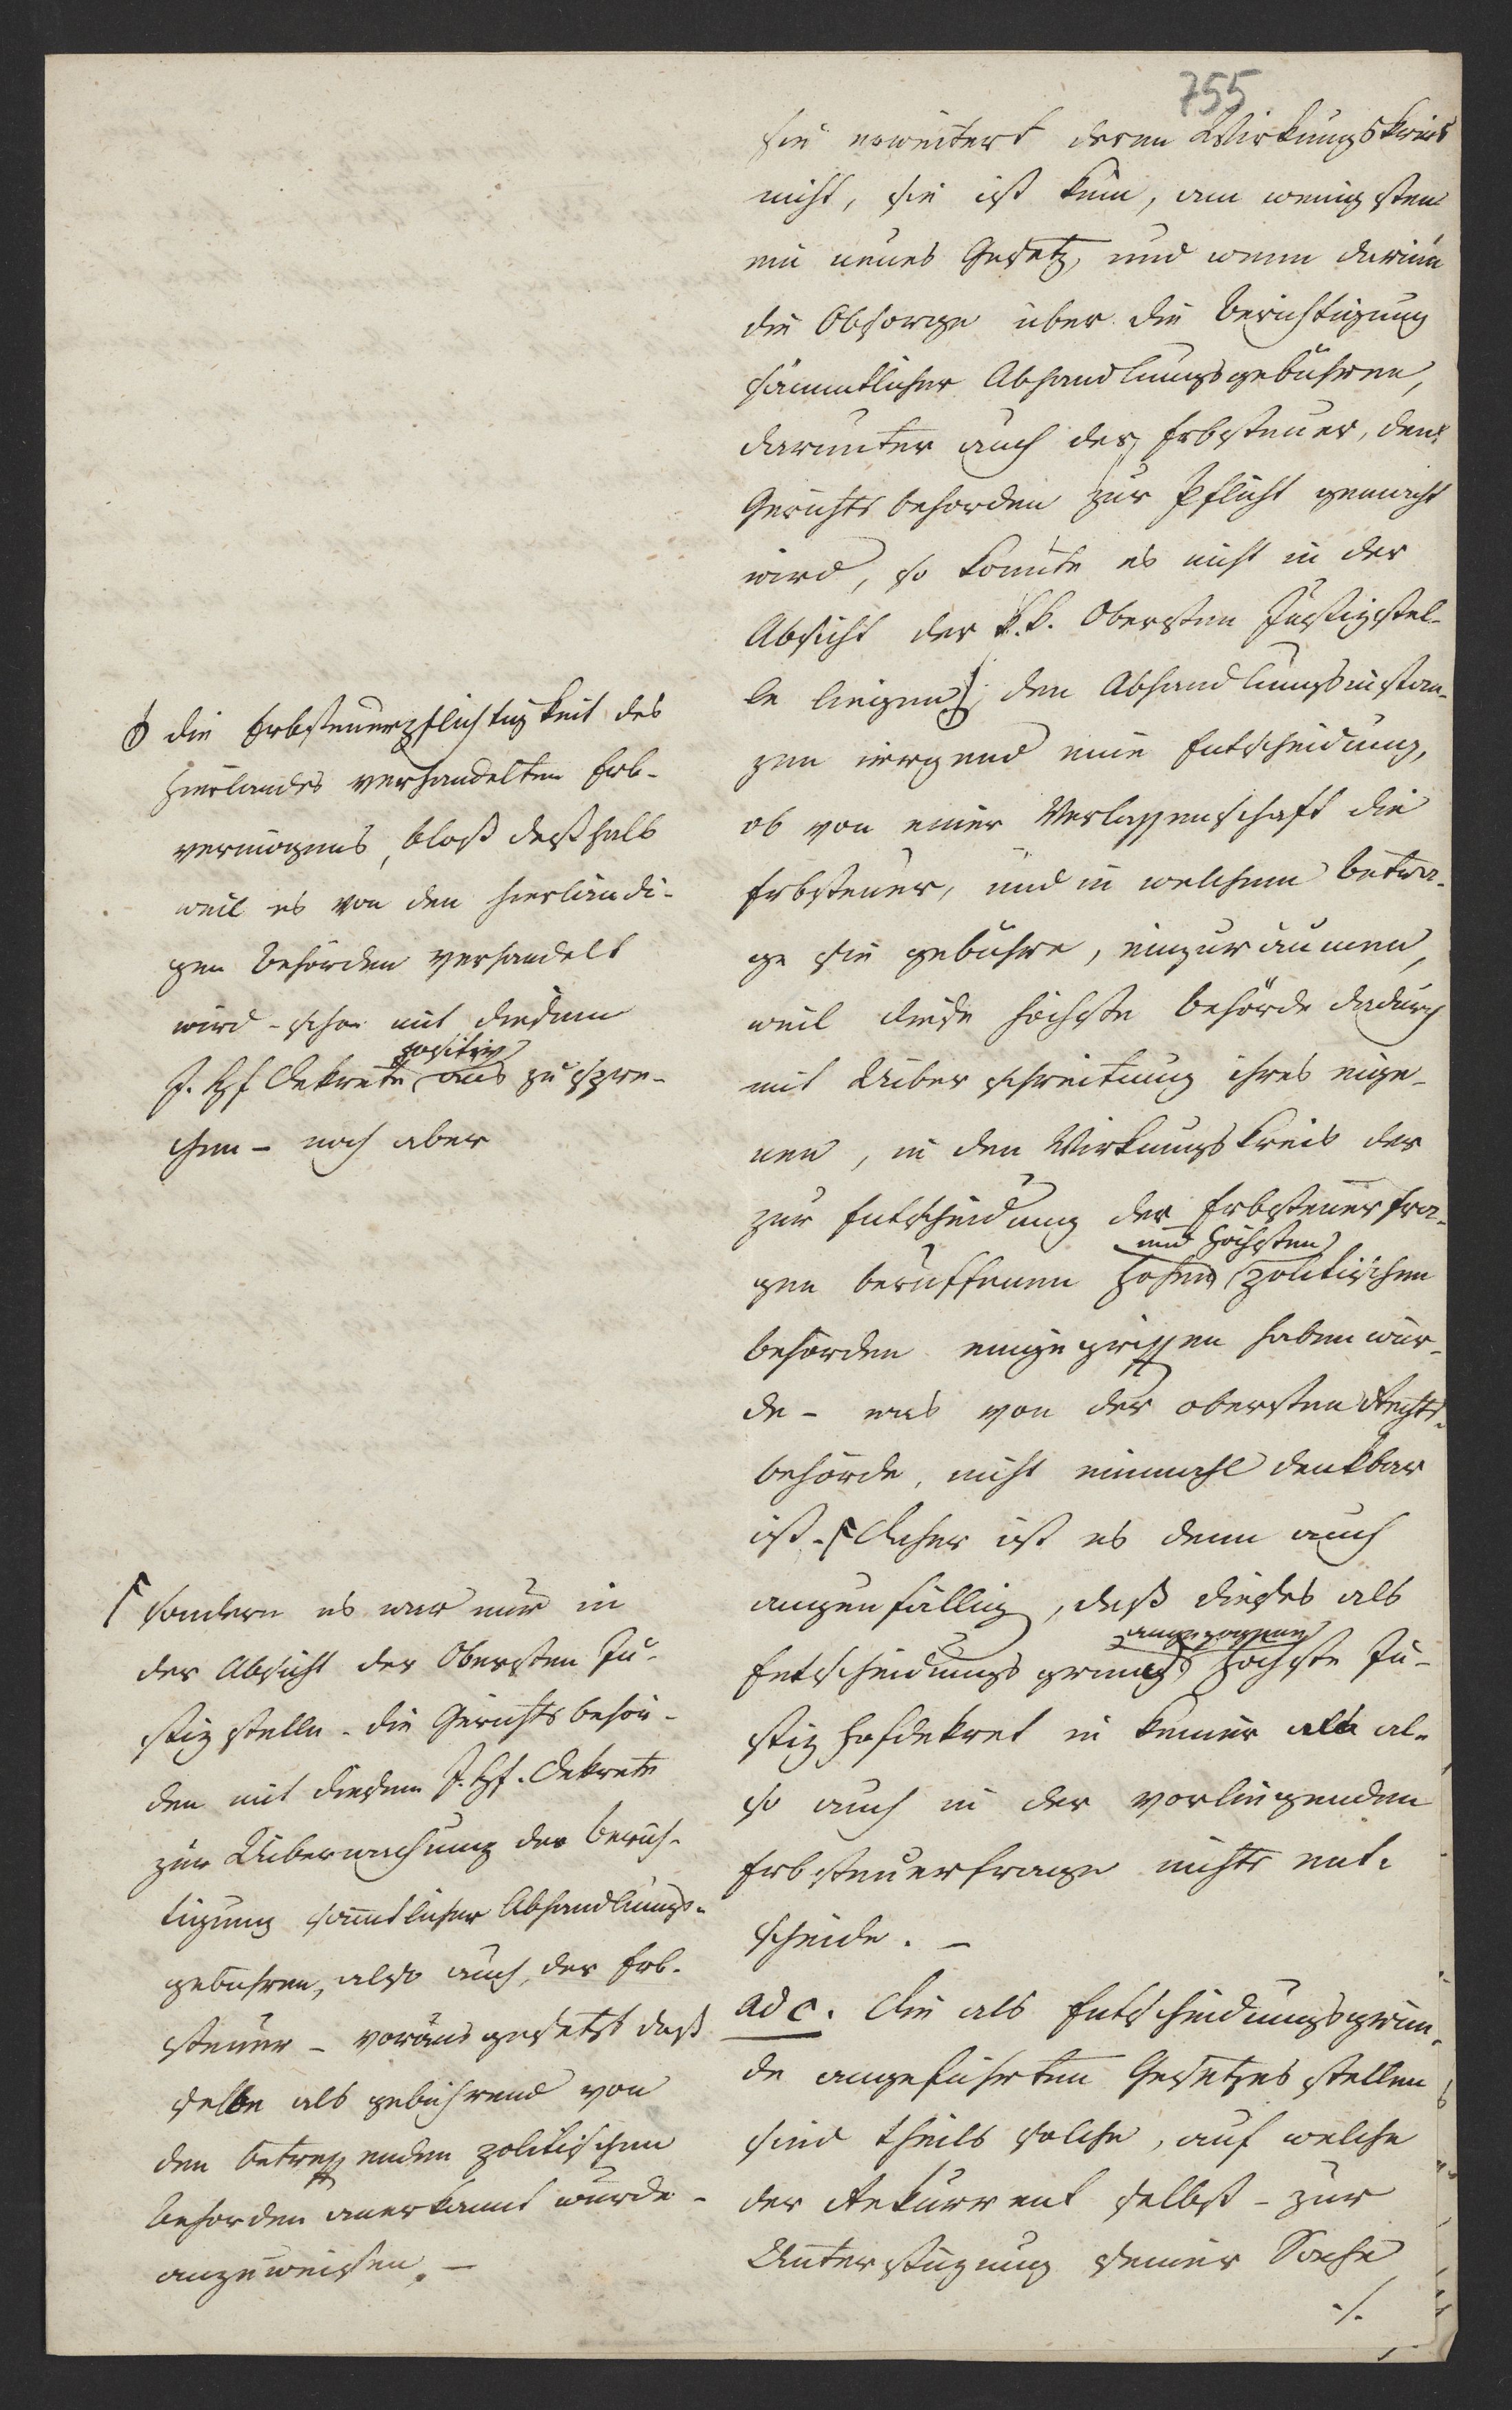 755
sie erweitert deren Wirkungskreis
nicht, sie ist kein, am wenigsten
ein neues Gesetz, und wenn darinn
die Obsorge über die Berichtigung
sämmtlicher Abhandlungsgebühren,
darunter auch der Erbsteuer, den
Gerichtsbehörden zur Pflicht gemacht
wird, so konnte es nicht in der
Absicht der k.k. Obersten Justizstel-
le liegen, den Abhandlungsinstan-
zen irgend eine Entscheidung,
ob von einer Verlassenschaft die
Erbsteuer, und in welchem Betra-
ge sie gebühre, einzuräumen,
weil diese höchste Behörde dadurch
mit Uiberschreitung ihres eige-
nen, in den Wirkungskreis der
zur Entscheidung der Erbsteuerfra-
und höchsten
gen beruffenen hohen politischen
Behörden eingegriffen haben wür-
de - was von der obersten Rechts-
behörde, nicht einmahl denkbar
ist. - Daher ist es denn auch
augenfällig, daß dieses als
angezogene
Entscheidungsgrund höchste Ju-
stizhofdekret in keiner al-
so auch in der vorliegenden
Erbsteuerfrage nichts ent-
scheide. -
ad c. Die als Entscheidungsgrün-
de angeführten Gesetzesstellen
sind theils solche, auf welche
der Rekurrent selbst - zur
Unterstützung seiner Sache
./.
die Erbsteuerpflichtigkeit des
hierlandes verhandelten Erb-
vermögens, bloß deßhalb
weil es von den hierländi-
gen Behörden verhandelt
wird - schon mit diesem
positiv
J. Hf Dekrete aus zu spre-
chen - noch aber
sondern es war nur in
der Absicht der Obersten Ju-
stizstelle - die Gerichtsbehör-
den mit diesem J. Hf. Dekrete
zur Uiberwachung der Berich-
tigung sämmtlicher Abhandlungs-
gebühren, also auch, der Erb-
steuer - vorausgesetzt daß
selbe als gebührend von
den betreffenden politischen
Behörden anerkannt wurde -
anzuweisen. -